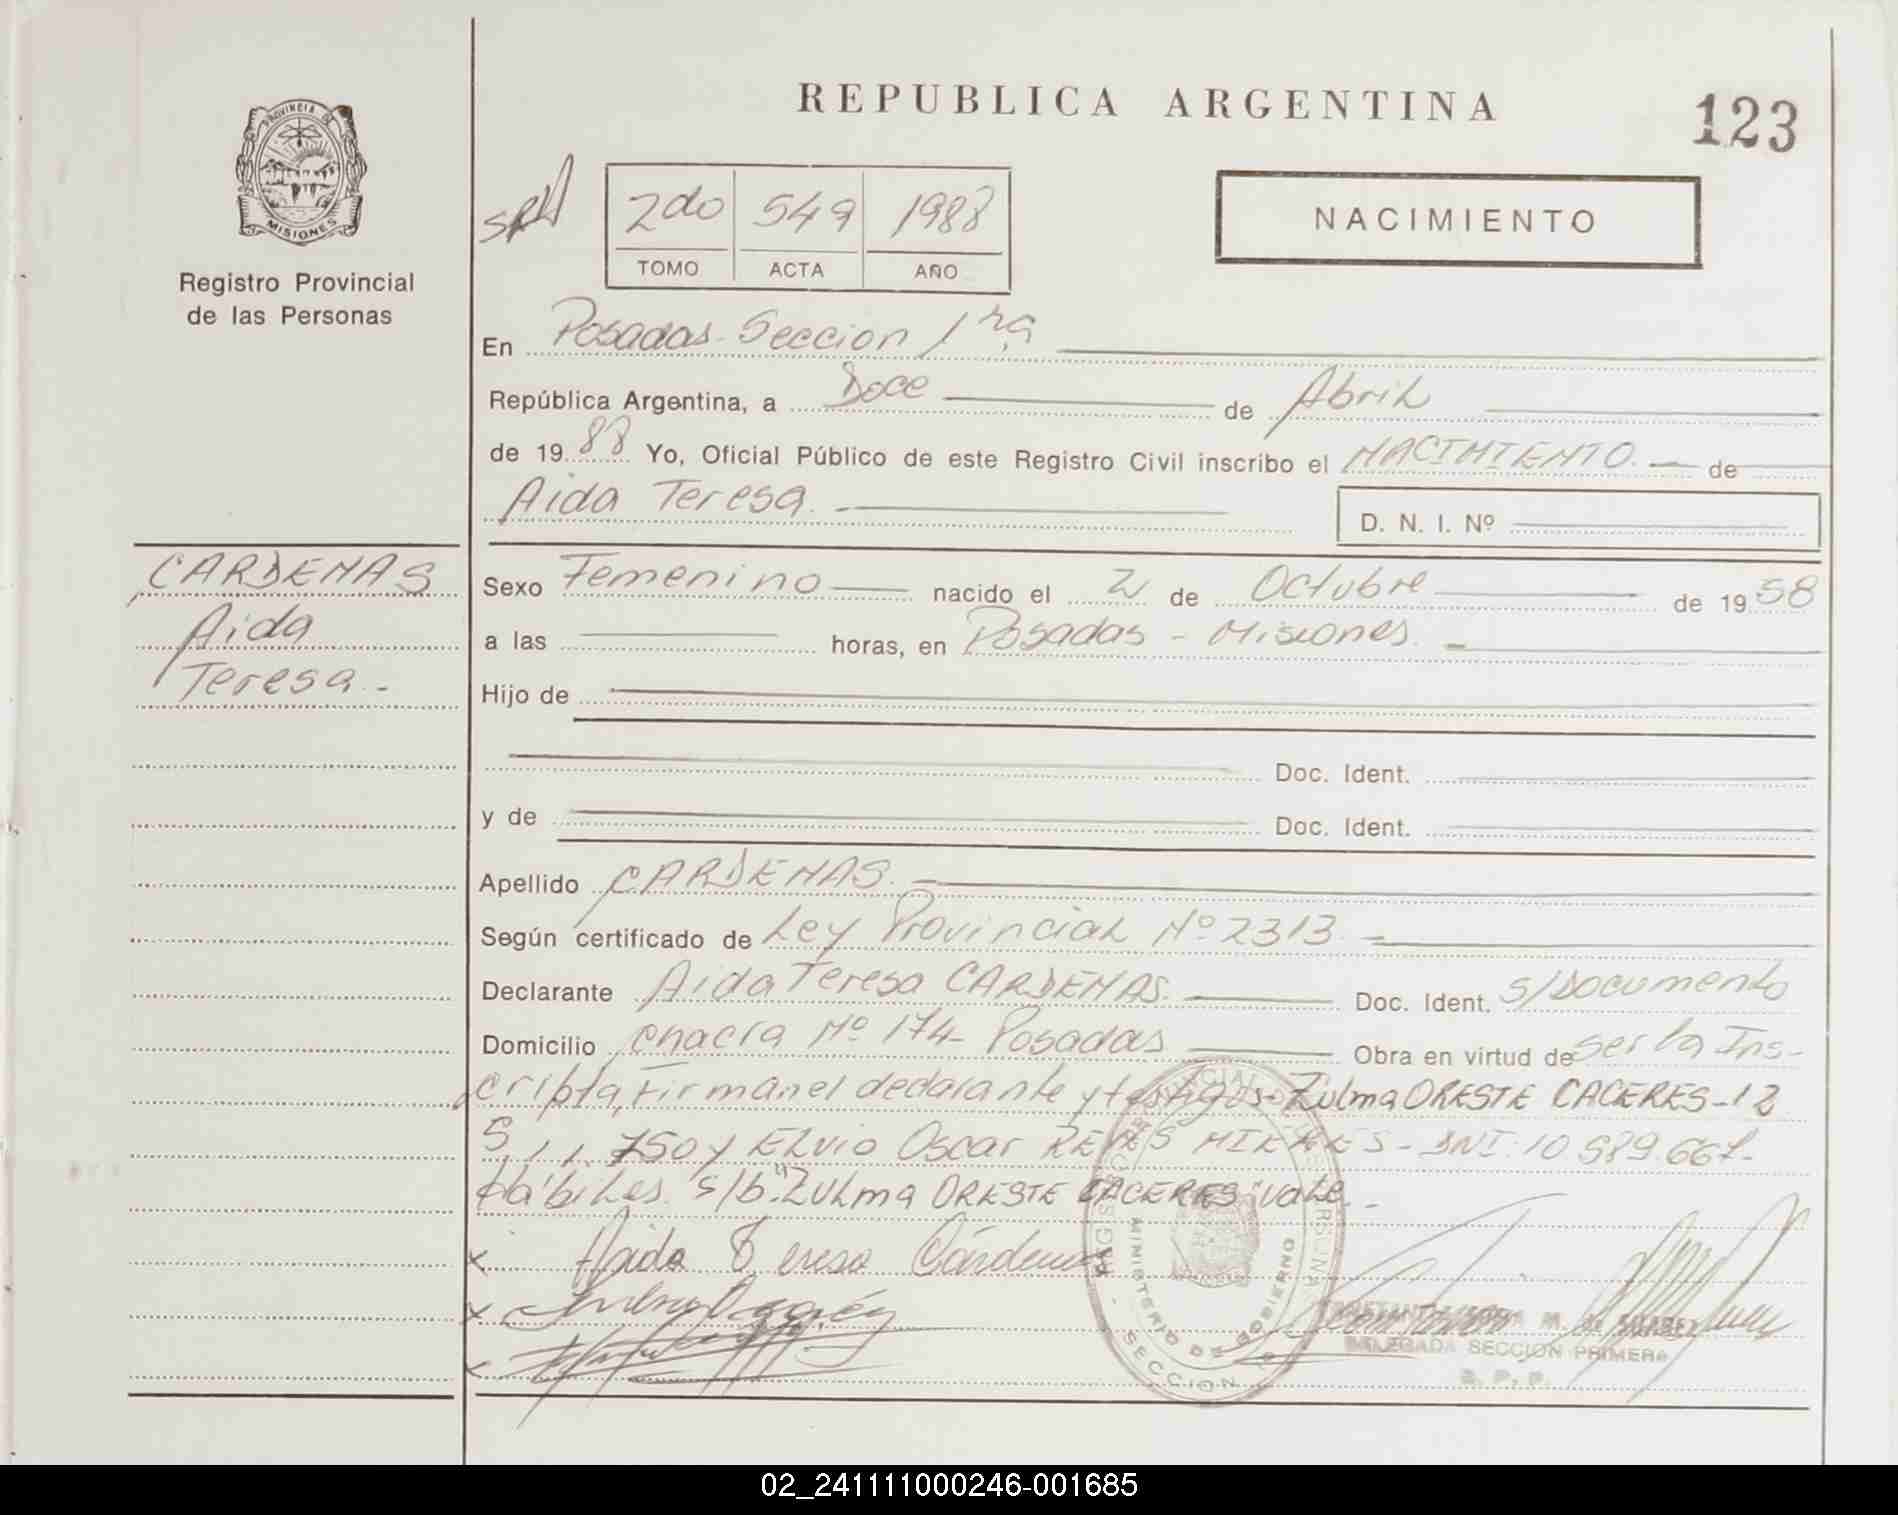 REPUBLICA ARGENTINA
123
PROVINCIA DE
MISIONES
Registro Provincial
de las Personas
2do 549 1988
TOMO ACTA AÑO
NACIMIENTO
En Posadas - Seccion 1ra
República Argentina, a Doce de Abril
de 1988 Yo, Oficial Público de este Registro Civil inscribo el NACIMIENTO. de
Aida Teresa.
D. N. I. Nº
CARDENAS
Aida
Teresa.-
Sexo Femenino nacido el 2 de Octubre de 1958
a las horas, en Posadas - Misiones.
Hijo de
Doc. Ident.
y de Doc. Ident.
Apellido CARDENAS.
Según certificado de Ley Provincial Nº 2313.-
Declarante Aida Teresa CARDENAS. Doc. Ident. S/Documento
Domicilio Chacra Nº 174- Posadas Obra en virtud de ser la Ins-
cripta, Firman el declarante y testigos- Zulma ORESTE CACERES-12
750 y ELvio Oscar REYES MIERES - DNI: 10.989.667-
HábiLes. s/b. "ZuLma ORESTE CACERES" vaLe.-
x Aida Teresa Cárdenas
x
x
MINISTERIO DE GOBIERNO
SECCION
M. SUAREZ
DELEGADA SECCION PRIMERA
R. P. P.
02_241111000246-001685